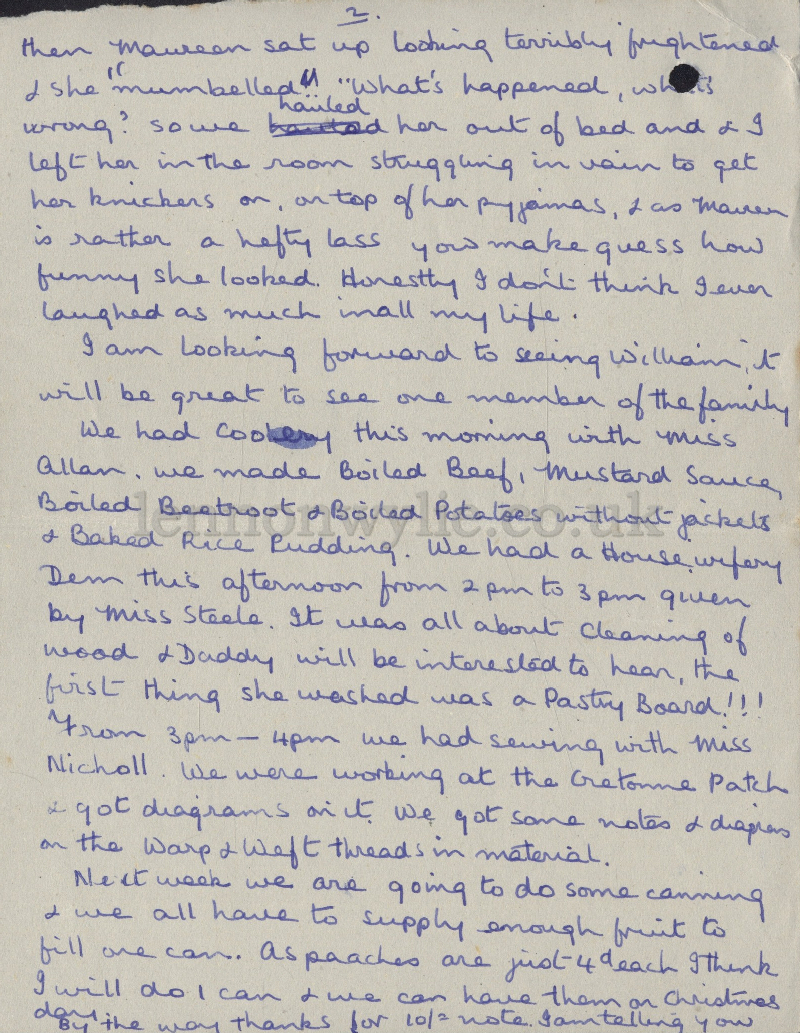 2.
then Maureen sat up looking terribly frightened
& she "mumbelled"!! "What's happened, what's
hauled
wrong? so we her out of bed and & I
left her in the room struggling in vain to get
her knickers on, on top of her pyjamas, & as Maureen
is rather a hefty lass you make guess how
funny she looked. Honestly I don't think I ever
laughed as much in all my life.
I am looking forward to seeing William, it
will be great to see one member of the family
We had Cookery this morning with Miss
Allan. we made Boiled Beef, Mustard Sauce,
Boiled Beetroot & Boiled Potatoes without jackets
& Baked Rice Pudding. We had a House wifery
Dem this afternoon from 2 pm to 3 pm given
by Miss Steele. It was all about Cleaning of
wood & Daddy will be interested to hear, the
first thing she washed was a Pastry Board!!!
From 3pm – 4pm we had sewing with Miss
Nicholl. We were working at the Cretonne Patch
& got diagrams on it. We got some notes & diagrams
on the Warp & Weft threads in material.
Next week we are going to do some canning
& we all have to supply enough fruit to
fill one can. As peaches are just 4d each I think
I will do 1 can & we can have them on Christmas
day.
By the way thanks for 10/= note. I am telling you
lennonwylie.co.uk